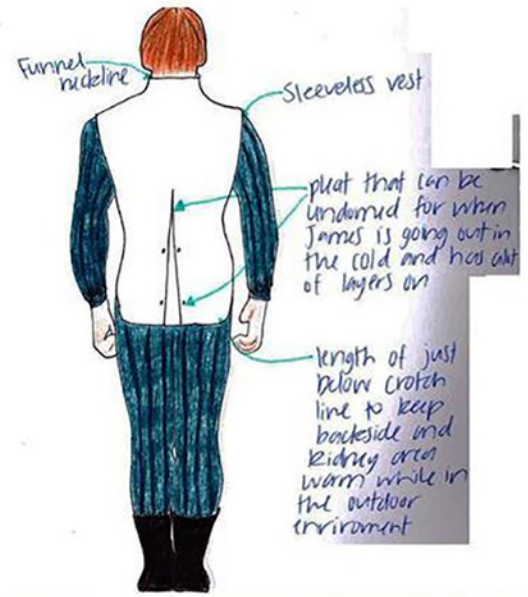 Funnel
neckline
Sleeveless vest
pleat that can be
undomed for when
James is going out in
the cold and has alot
of layers on
length of just
below crotch
line to keep
backside and
kidney area
warm while in
the outdoor
enviroment